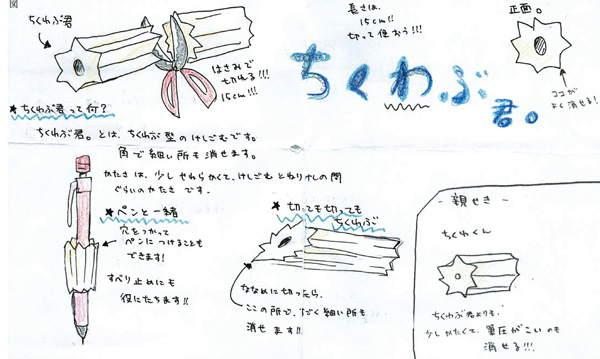 図
ちくわぶ君
はさみで
切れる!!!
15cm!!!
長さは、
15cm!!
切って使おう!!!
ちくわぶ君。
正面。
ココが
よく消せる!
★ちくわぶ君って何?
ちくわぶ君。とは、ちくわぶ型のけしごむです。
角で細い所も消せます。
かたさは、少しやわらかくて、けしごむとねりけしの間
ぐらいのかたさです。
★ペンと一緒
穴をつかって
ペンにつけることも
できます!
すべり止めにも
役にたちます!!
★切っても切っても
ちくわぶ
ななめに切ったら、
ここの所で、すごく細い所も
消せます!!
- 親せき -
ちくわくん
ちくわぶ君よりも、
少しかたくて、筆圧がこいのも
消せる!!!